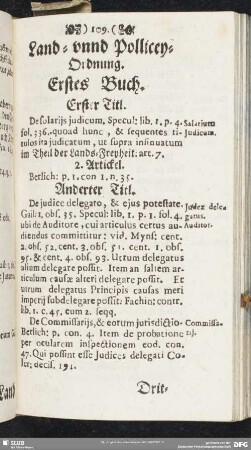 ) 109. (
Land- vnnd Pollicey-
Ordnung.
Erstes Buch.
Erster Titl.
De solarijs judicum, Specul: lib. 1. p. 4. Salarium
fol. 336. quoad hunc, & sequentes ti- Judicum.
tulos ita judicatum, ut supra insinuatum
im Theil der Lands-Freyheit: art. 7.
2. Artickel.
Berlich: p. 1. con 1. n. 35.
Anderter Titl.
De judice delegato, & ejus potestate. Judex dele
Gail: 1, obs. 35. Specul: lib. 1. p. 1. sol. 4. gatus.
ubi de Auditore, cui articulus certus au- Auditor.
diendus committitur: vid. Myns: cent.
2. obs. 52. cent. 3. obs. 51. cent. 1. obs.
95. & cent. 4. obs. 93. Utrum delegatus
alium delegare possit. Item an saltem ar-
ticulum causæ alteri delegare possit. Et
utrum delegatus Principis causas meri
imperij subdelegare possit: Fachin: contr.
lib. 1. c. 45, cum 2. seqq.
De Commissarijs, & eorum jurisdictio- Commissa-
Berlich: p. con. 4. Item de probatione rij.
per ocularem inspectionem eod. con.
47. Qui possint esse Judices delegati Co-
ler: decis. 191.
Drit-
SLUB